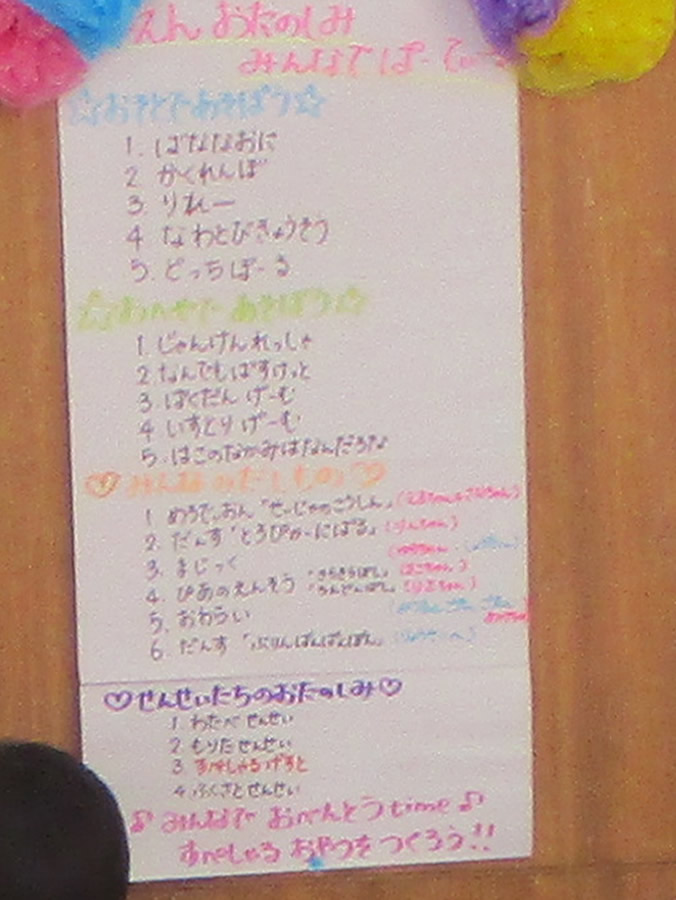 えん おたのしみ
みんなでぱーてぃー
☆おそとであそぼう☆
1. ばななおに
2 かくれんぼ
3. りれー
4 なわとびきょうそう
5. どっちぼーる
☆おへやであそぼう☆
1. じゃんけんれっしゃ
2. なんでもばすけっと
3. ばくだんげーむ
4 いすとりげーむ
5. はこのなかみはなんだろな
♡みんなのだしもの♡
1 めろでぃおん「せいじゃのこうしん」
2. だんす「とろぴかーにばる」(りんちゃん)
3. まじっく
4. ぴあのえんそう「きらきらぼし」
5. おわらい
6. だんす「ぷりんぱんぱんぱん」
♡せんせいたちのおたのしみ♡
1 わたべせんせい
2 もりたせんせい
3 すぺしゃるげすと
4 ふくさとせんせい
♪みんなで おべんとうtime♪
すぺしゃる おやつをつくろう!!